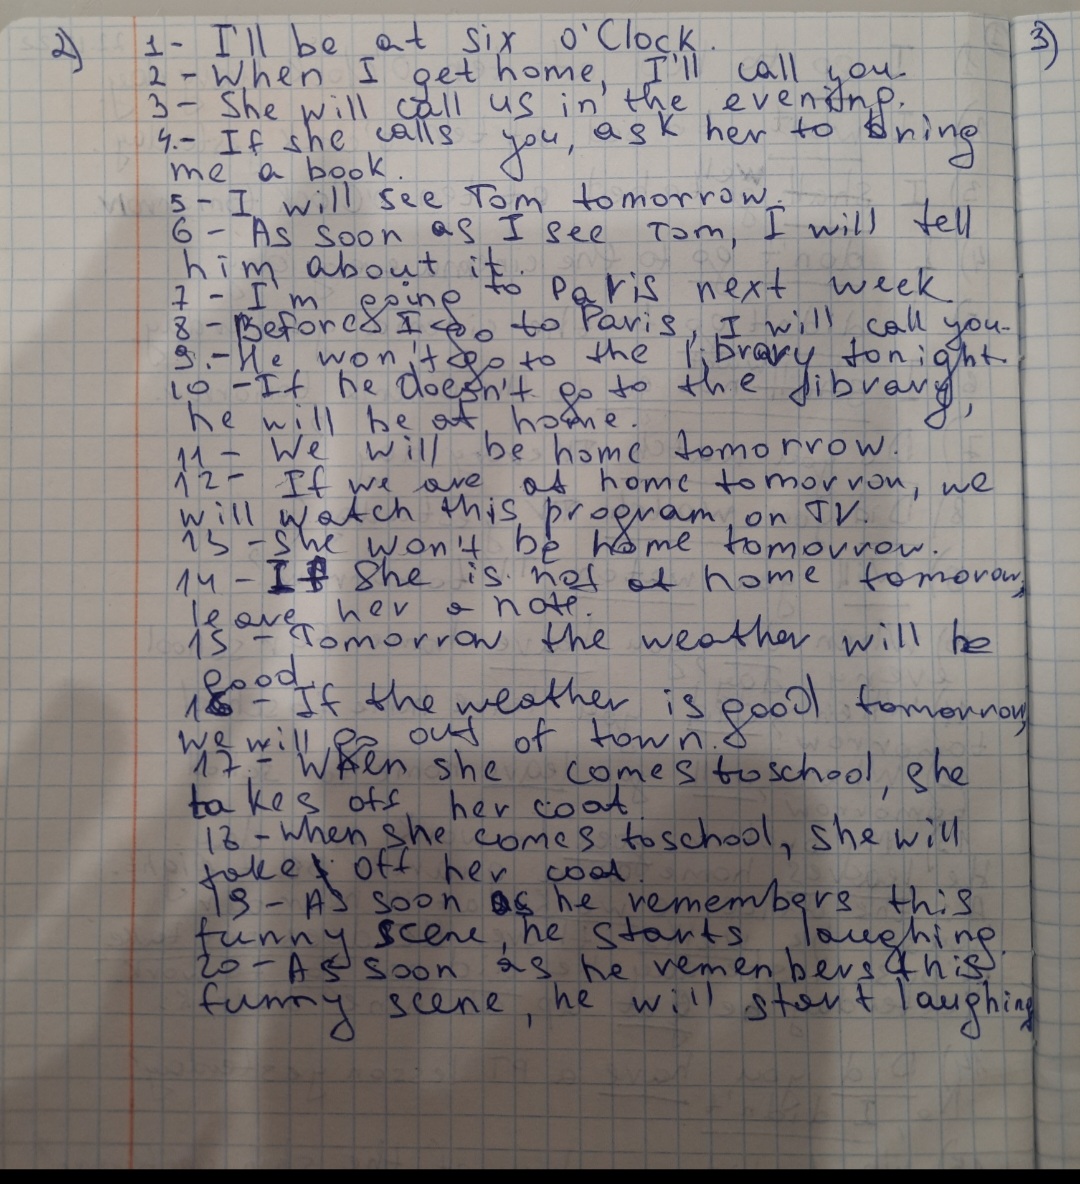 2) 1- I'll be at six o'Clock. 3)
2 - When I get home, I'll call you.
3 - She will call us in the evening.
4.- If she calls you, ask her to bring
me a book.
5 - I will see Tom tomorrow.
6 - As soon as I see Tom, I will tell
him about it.
7 - I'm going to Paris next week
8 - Before I go to Paris, I will call you.
9.- He won't go to the library tonight.
10 - If he doesn't go to the library,
he will be at home.
11 - We will be home tomorrow.
12 - If we are at home tomorrow, we
will watch this program on TV.
13 - She won't be home tomorrow.
14 - If She is not at home tomorow,
leave her a note.
15 - Tomorrow the weather will be
good.
16 - If the weather is good tomorrow,
we will go out of town.
17.- When she comes to school, she
takes off her coat.
18 - When she comes to school, she will
take off her coat.
19 - As soon as he remembers this
funny scene, he starts laughing.
20 - As soon as he remenbers this
funny scene, he will start laughing